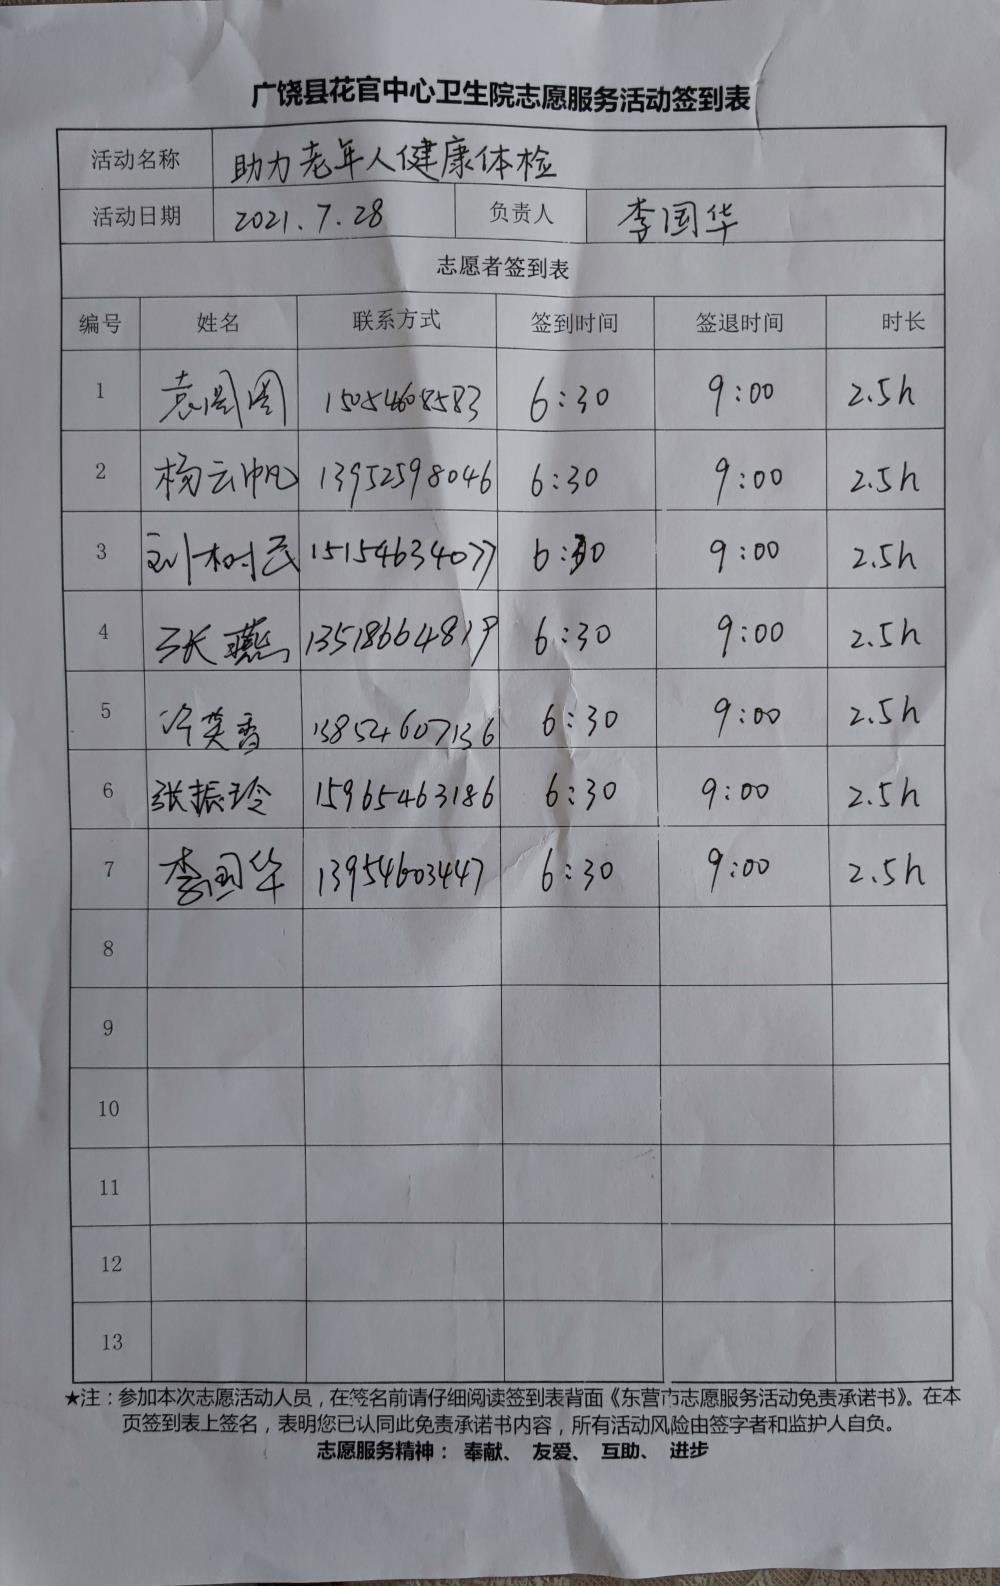 广饶县花官中心卫生院志愿服务活动签到表
活动名称 助力老年人健康体检
活动日期 2021.7.28 负责人 李国华
志愿者签到表
编号 姓名 联系方式 签到时间 签退时间 时长
1 袁圆圆 15054608583 6:30 9:00 2.5h
2 杨云帆 13952598046 6:30 9:00 2.5h
3 刘树民 15154634077 6:30 9:00 2.5h
4 张燕 13518664819 6:30 9:00 2.5h
5 冷英香 13852607136 6:30 9:00 2.5h
6 张振玲 15965463186 6:30 9:00 2.5h
7 李国华 13954603447 6:30 9:00 2.5h
8
9
10
11
12
13
★注：参加本次志愿活动人员，在签名前请仔细阅读签到表背面《东营市志愿服务活动免责承诺书》。在本
页签到表上签名，表明您已认同此免责承诺书内容，所有活动风险由签字者和监护人自负。
志愿服务精神： 奉献、 友爱、 互助、 进步